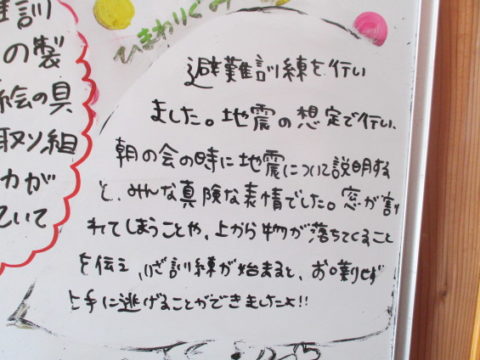 難訓
の製
絵の具
取り組
力が
ていて
ひまわりぐみ
避難訓練を行い
ました。地震の想定で行い、
朝の会の時に地震について説明する
と、みんな真険な表情でした。窓が割
れてしまうことや、上から物が落ちてくること
を伝え、いざ訓練が始まると、お喋りせず
上手に逃げることができましたよ!!